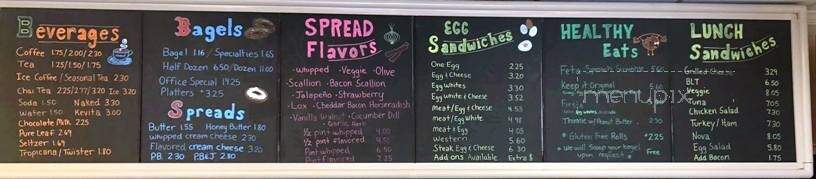 Beverages
Coffee 1.75/2.00/2.30
Tea 1.25/1.50/1.75
Ice Coffee/Seasonal Tea 2.30
Chai Tea 2.25/2.77/ Ice 3.20
Soda 1.50 Naked 3.30
Water 1.50 Kevita 3.00
Chocolate Milk 2.25
Pure Leaf 2.69
Seltzer 1.69
Tropicana/Twister 1.80
Bagels
Bagel 1.16/Specialties 1.65
Half Dozen 6.50/Dozen 11.00
Office Special 14.25
Platters *3.25
Spreads
Butter 1.55 Honey Butter 1.80
whipped cream cheese 2.30
Flavored cream cheese 3.20
P.B. 2.30 P.B&J 2.80
SPREAD
Flavors
-whipped -Veggie -Olive
-Scallion -Bacon Scallion
-Jalapeño -Strawberry
-Lox -Cheddar Bacon Horseradish
-Vanilla Walnut -Cucumber Dill
1/2 pint whipped 4.00
1/2 pint flavored 4.50
Pint whipped 6.50
Pint flavored 7.25
EGG
Sandwiches
One Egg 2.25
Egg & Cheese 3.20
Egg Whites 3.30
Egg White & Cheese 3.52
Meat/Egg & Cheese 4.53
meat/Egg White 4.98
meat & Egg 4.05
Western 5.60
Steak Egg & Cheese 6.30
Add ons Available Extra $
HEALTHY
Eats
Feta 5.60
Keep it Original
Peanut Butter 2.30
* Gluten Free Rolls *2.25
* we will scoop your bagel
upon request * Free
LUNCH
Sandwiches
Grilled Cheese 3.29
BLT 6.50
Veggie 5.05
Tuna 7.05
Chicken Salad 7.30
Turkey/Ham 7.30
Nova 8.05
Egg Salad 5.80
Add Bacon 1.75
menupix